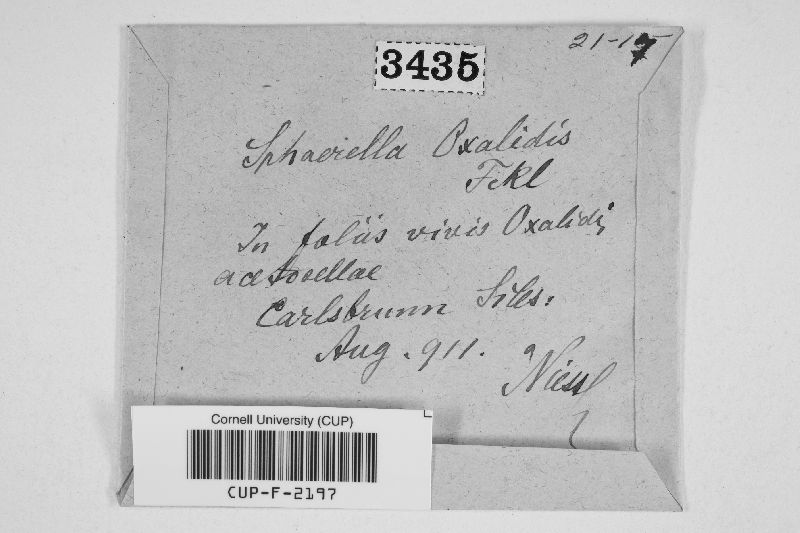 21-17
3435
Sphaerella Oxalidis
Fckl
In foliis vivis Oxalidis
acetosellae
Carlsbrunn Siles.
Aug. 911.
Niessl
Cornell University (CUP)
CUP-F-2197